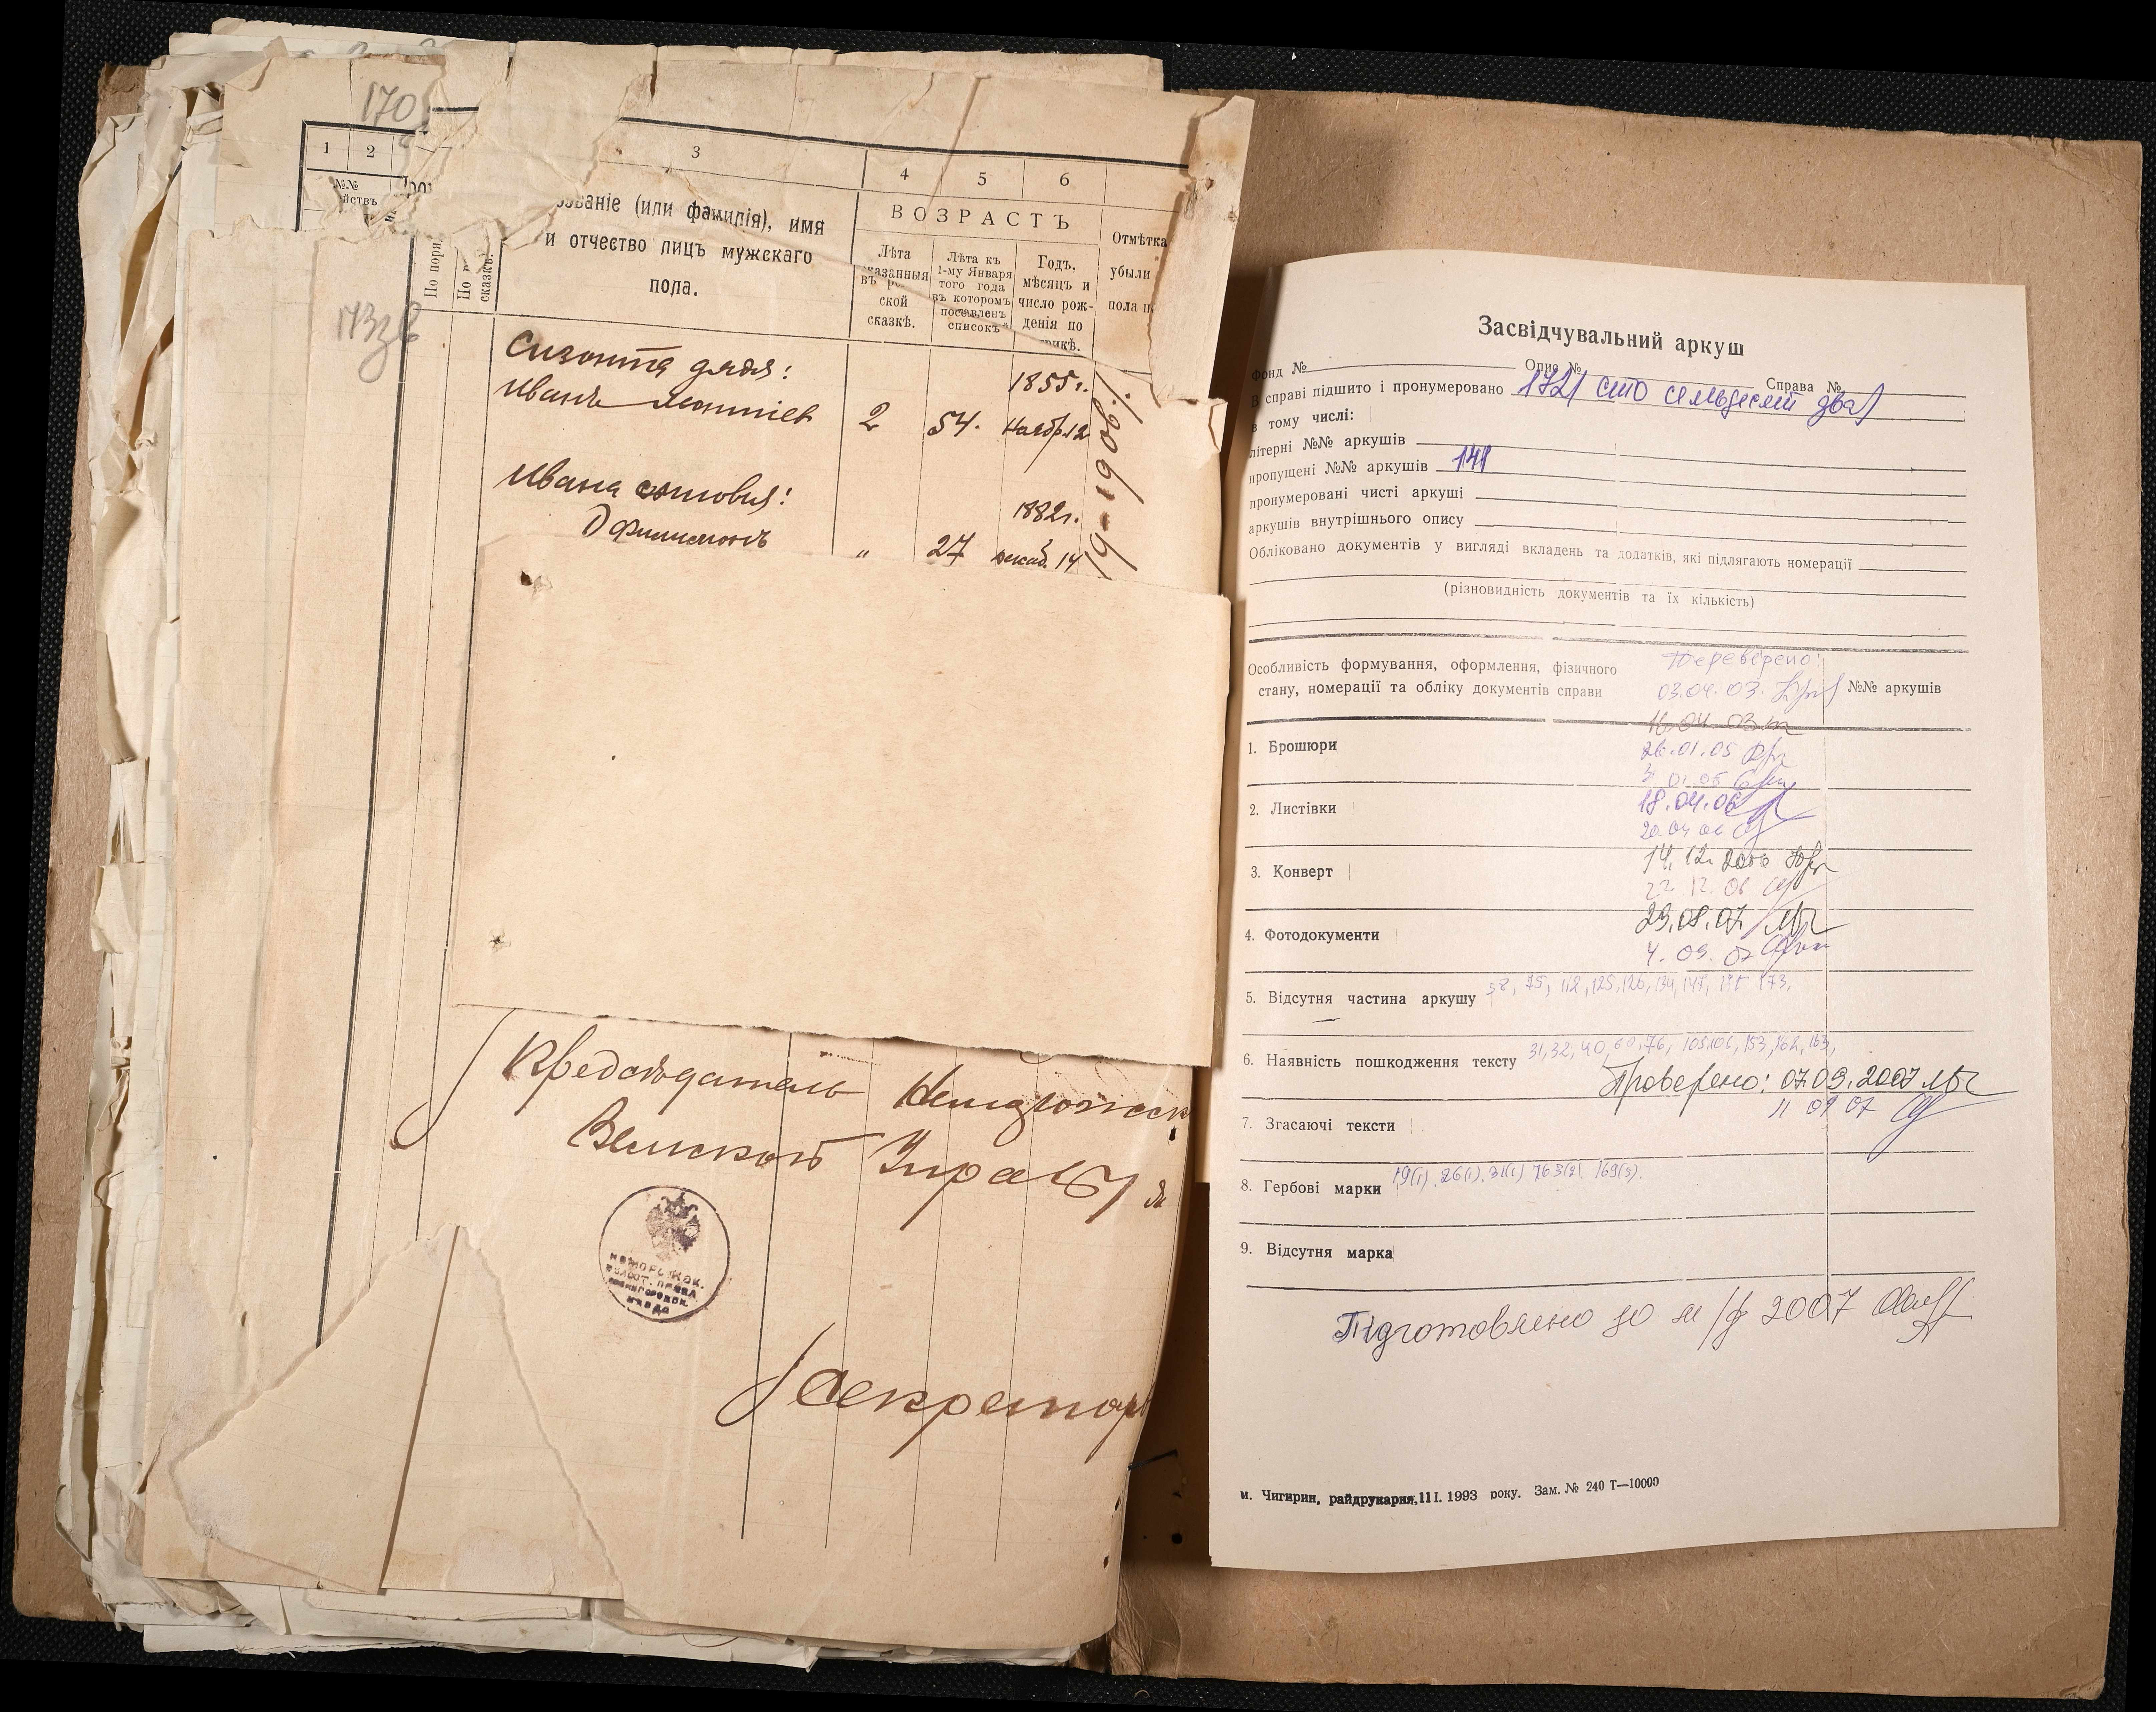 170
173зв
1
2
3
4
5
6
№№
йствъ
званіе (или фамилія), имя
и отчество лицъ мужскаго
пола.
ВОЗРАСТЪ
Лѣта
сказанныя
въ ре
ской
сказкѣ.
Лѣта къ
1-му Января
того года
въ которомъ
поставленъ
списокъ
Годъ,
мѣсяцъ и
число рож-
денія по
Отмѣтка
убыли
пола
По поря
По
сказкѣ.
дядя:
1855г.
Иванъ
2
54.
Нояб. 12
Ивана
1882г.
Филимонъ
"
27
декаб. 14
Предсѣдатель
Волисной Управы
Секретарь
Засвідчувальний аркуш
Фонд № Опис № Справа №
В справі підшито і пронумеровано 172 (сто сімдесят два)
в тому числі:
літерні №№ аркушів
пропущені №№ аркушів 141
пронумеровані чисті аркуші
аркушів внутрішнього опису
Обліковано документів у вигляді вкладень та додатків, які підлягають номерації
(різновидність документів та їх кількість)
Особливість формування, оформлення, фізичного
стану, номерації та обліку документів справи
Перевірено:
03.04.03.
№№ аркушів
16.04.03
1. Брошюри
26.01.05
31.01.05
2. Листівки
18.04.06
20 04 06
3. Конверт
14.12.2006
22 12. 06
29.08.07
4. Фотодокументи
4. 09. 07
5. Відсутня частина аркушу
173.
6. Наявність пошкодження тексту 31, 32, 40, 60, 76, 105, 106, 153, 162, 163,
Проверено: 07.09.2007
11 09 07
7. Згасаючі тексти
8. Гербові марки 19(1). 26(1). 31(1) 163(2). 169(3).
9. Відсутня марка
Підготовлено до м/ф 2007
м. Чигирин, райдрукарня, 11 I. 1993 року. Зам. № 240 Т—10000